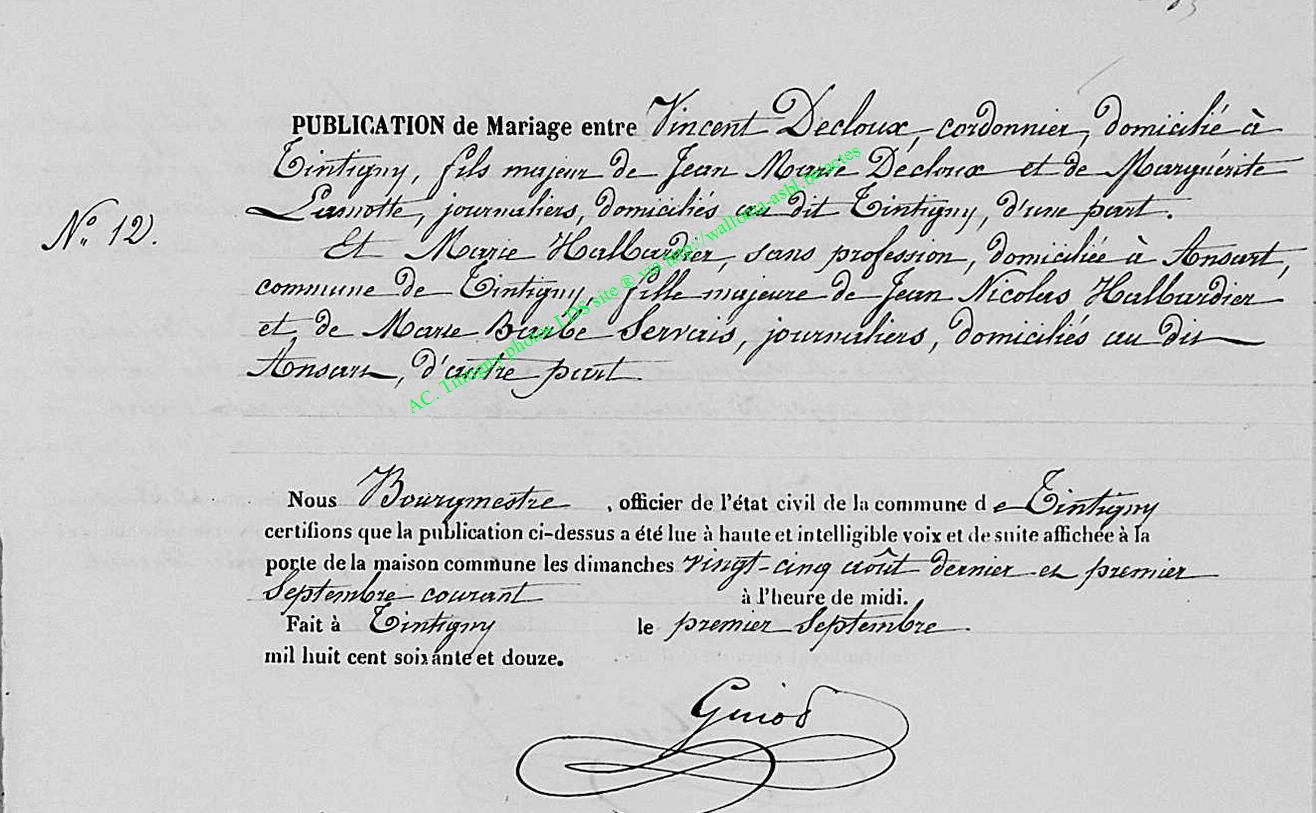 PUBLICATION de Mariage entre Vincent Decloux, cordonnier, domicilié à
Tintigny, fils majeur de Jean Marie Decloux et de Marguérite
Lamotte, journaliers, domiciliés au dit Tintigny, d'une part.
N° 12.
Et Marie Halbardier, sans profession, domiciliée à Ansart,
commune de Tintigny, fille majeure de Jean Nicolas Halbardier
et de Marie Barbe Servais, journaliers, domiciliés au dit
Ansart, d'autre part.
AC. Tintigny photos LDS site ® via http://wallonia-asbl.be/actes
Nous Bourgmestre, officier de l'état civil de la commune de Tintigny
certifions que la publication ci-dessus a été lue à haute et intelligible voix et de suite affichée à la
porte de la maison commune les dimanches vingt-cinq août dernier et premier
Septembre courant à l'heure de midi.
Fait à Tintigny le premier Septembre
mil huit cent soixante et douze.
Guiod